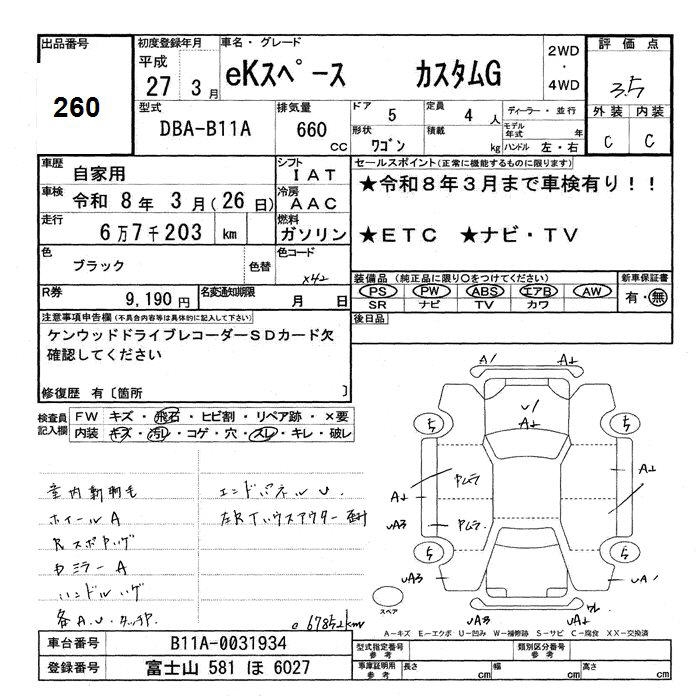 出品番号
260
初度登録年月
平成
27 3 月
車名・グレード
eKスペース カスタムG
2WD
・
4WD
評価点
3.5
外装 内装
C C
型式
DBA-B11A
排気量
660
CC
ドア 5
定員 4 人
ディーラー・並行
形状 ワゴン
積載 kg
モデル年式 年
ハンドル 左・右
車歴
自家用
シフト
IAT
車検
令和 8 年 3 月 (26 日)
冷房
AAC
走行
6万7千203 km
燃料
ガソリン
色
ブラック
色替
色コード
X42
R券
9,190 円
名変通知期限
月 日
セールスポイント(正常に機能するものに限ります)
★令和8年3月まで車検有り!!
★ETC ★ナビ・TV
装備品 (純正品に限り○をつけてください)
PS PW ABS エアB AW
SR ナビ TV カワ
新車保証書
有・無
後日品
注意事項申告欄 (不具合内容等は具体的に記入して下さい)
ケンウッドドライブレコーダーSDカード欠
確認してください
修復歴 有〔箇所 〕
検査員
記入欄
FW キズ・飛石・ヒビ割・リペア跡・×要
内装 キズ・汚れ・コゲ・穴・スレ・キレ・破レ
ホイールA
エンドパネルU.
ハンドルハゲ
67852km
A1 A1
U1
A1
A1 A1
UA3
UA3 UA1
UA3 UA1
スペア
A－キズ E－エクボ U－凹み W－補修跡 S－サビ C－腐食 XX－交換済
車台番号
B11A-0031934
登録番号
富士山 581 ほ 6027
型式指定番号
参考
類別区分番号
参考
車庫証明用
参考
長さ cm
幅 cm
高さ cm